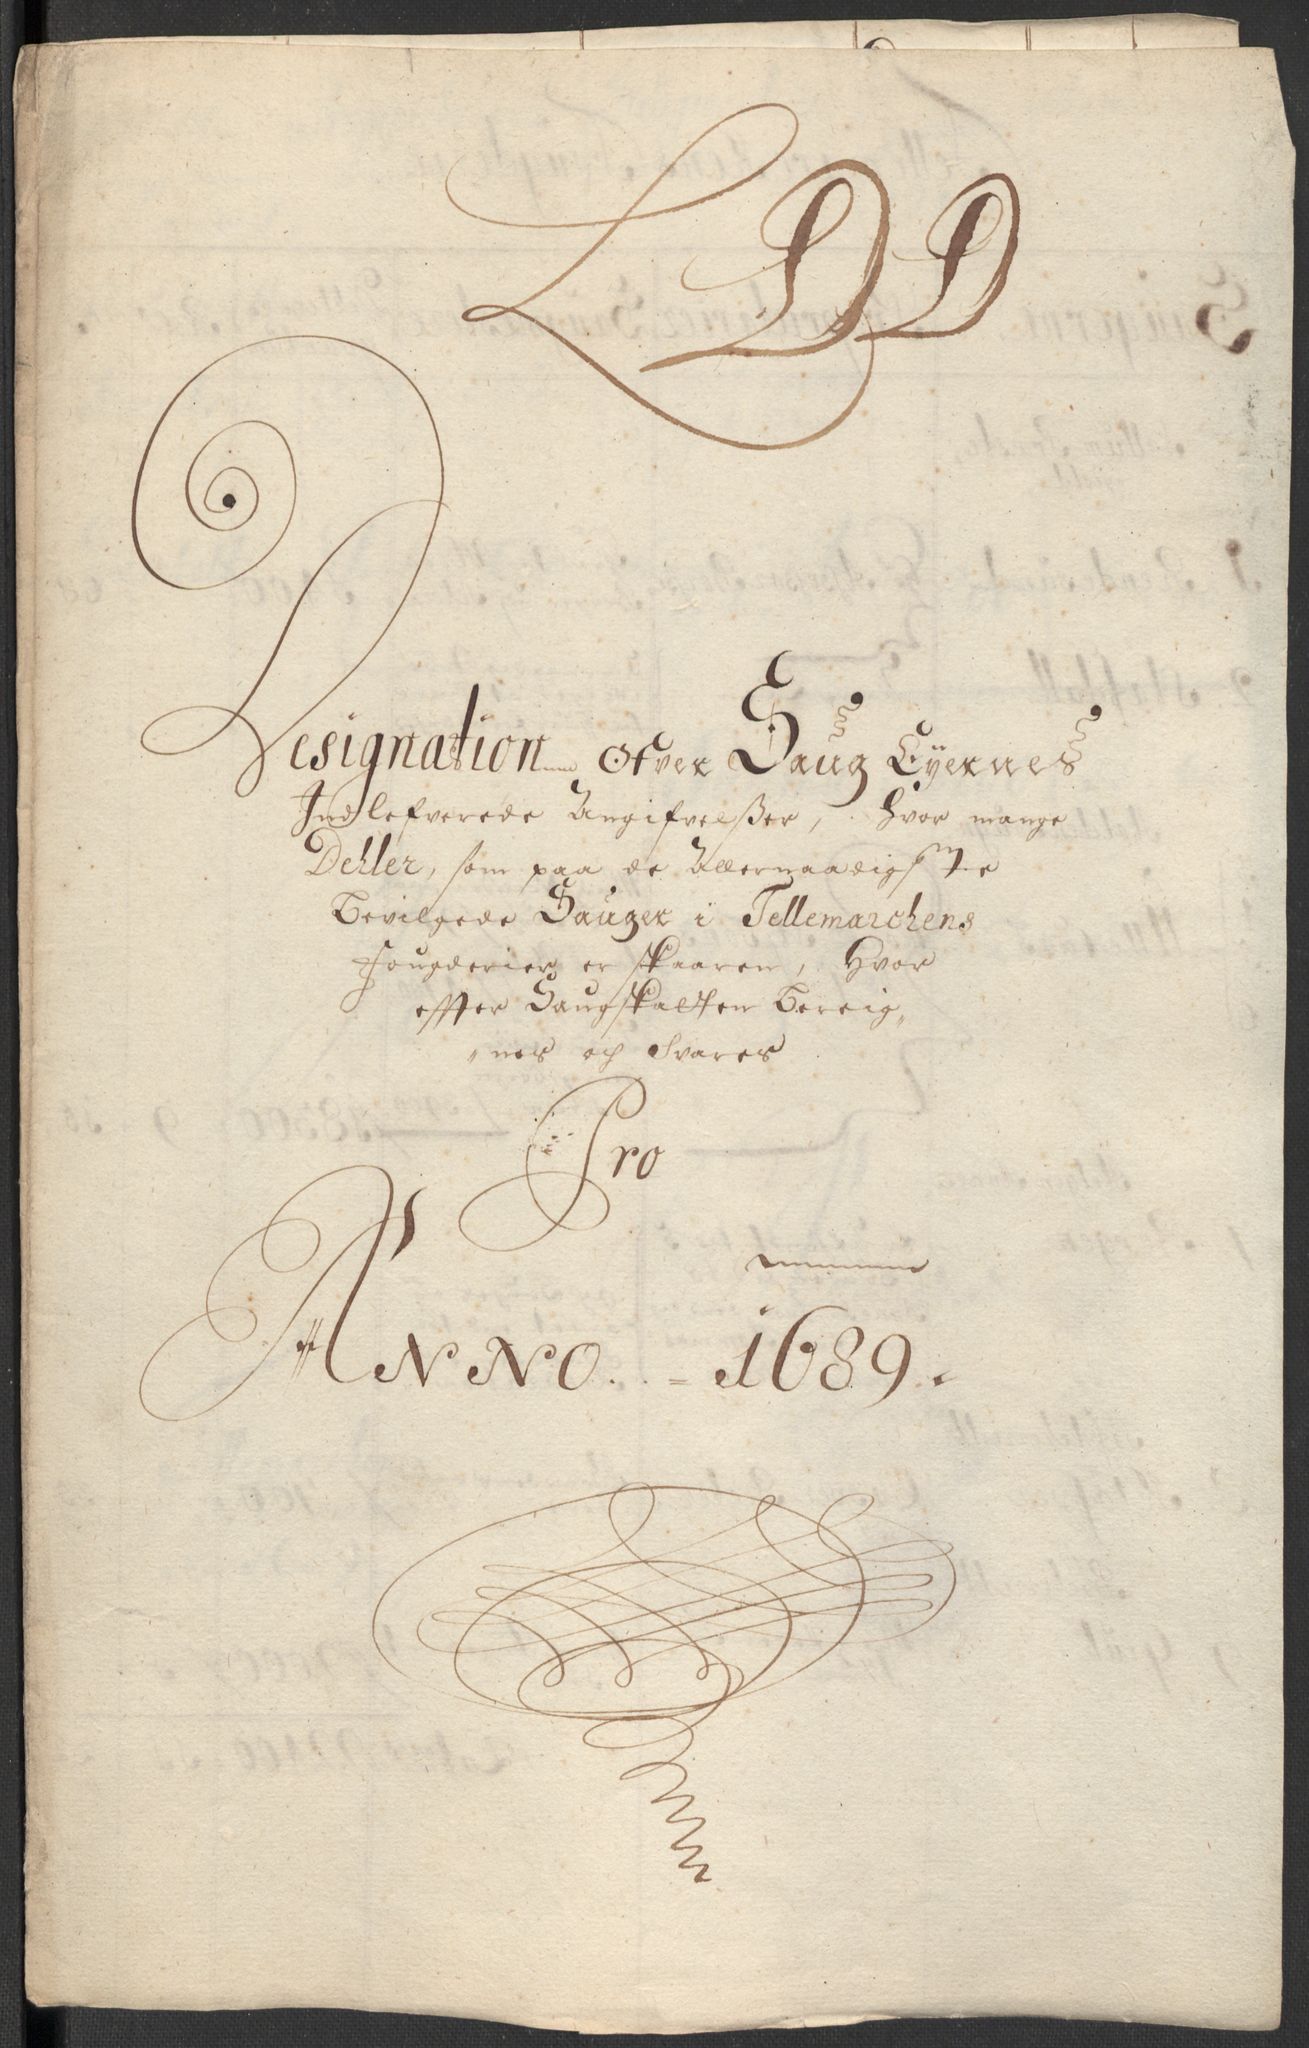 LDD
Designation Ofver Saug Eyernes
Indlefverede Angifvelßer, hvor mange
Dehler, som paa de Allernaadigste
Bevilgede Sauger i Tellemarchens
Fougderier er skaaren, Hvor
effter Saugskatten bereig„
„nes och Svares
Pro
ANNO. = 1689.